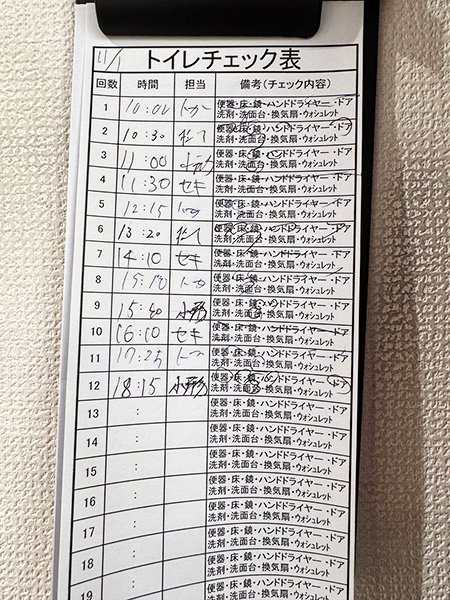 11/1
トイレチェック表
回数 時間 担当 備考(チェック内容)
1 10:02 便器・床・鏡・ハンドドライヤー・ドア
洗剤・洗面台・換気扇・ウォシュレット
2 10:30 便器・床・鏡・ハンドドライヤー・ドア
洗剤・洗面台・換気扇・ウォシュレット
3 11:00 便器・床・鏡・ハンドドライヤー・ドア
洗剤・洗面台・換気扇・ウォシュレット
4 11:30 セキ 便器・床・鏡・ハンドドライヤー・ドア
洗剤・洗面台・換気扇・ウォシュレット
5 12:15 便器・床・鏡・ハンドドライヤー・ドア
洗剤・洗面台・換気扇・ウォシュレット
6 13:20 便器・床・鏡・ハンドドライヤー・ドア
洗剤・洗面台・換気扇・ウォシュレット
7 14:10 セキ 便器・床・鏡・ハンドドライヤー・ドア
洗剤・洗面台・換気扇・ウォシュレット
8 15:10 便器・床・鏡・ハンドドライヤー・ドア
洗剤・洗面台・換気扇・ウォシュレット
9 15:40 小形 便器・床・鏡・ハンドドライヤー・ドア
洗剤・洗面台・換気扇・ウォシュレット
10 16:10 セキ 便器・床・鏡・ハンドドライヤー・ドア
洗剤・洗面台・換気扇・ウォシュレット
11 17:25 便器・床・鏡・ハンドドライヤー・ドア
洗剤・洗面台・換気扇・ウォシュレット
12 18:15 小形 便器・床・鏡・ハンドドライヤー・ドア
洗剤・洗面台・換気扇・ウォシュレット
13 : 便器・床・鏡・ハンドドライヤー・ドア
洗剤・洗面台・換気扇・ウォシュレット
14 : 便器・床・鏡・ハンドドライヤー・ドア
洗剤・洗面台・換気扇・ウォシュレット
15 : 便器・床・鏡・ハンドドライヤー・ドア
洗剤・洗面台・換気扇・ウォシュレット
16 : 便器・床・鏡・ハンドドライヤー・ドア
洗剤・洗面台・換気扇・ウォシュレット
17 : 便器・床・鏡・ハンドドライヤー・ドア
洗剤・洗面台・換気扇・ウォシュレット
18 : 便器・床・鏡・ハンドドライヤー・ドア
洗剤・洗面台・換気扇・ウォシュレット
19 : 便器・床・鏡・ハンドドライヤー・ドア